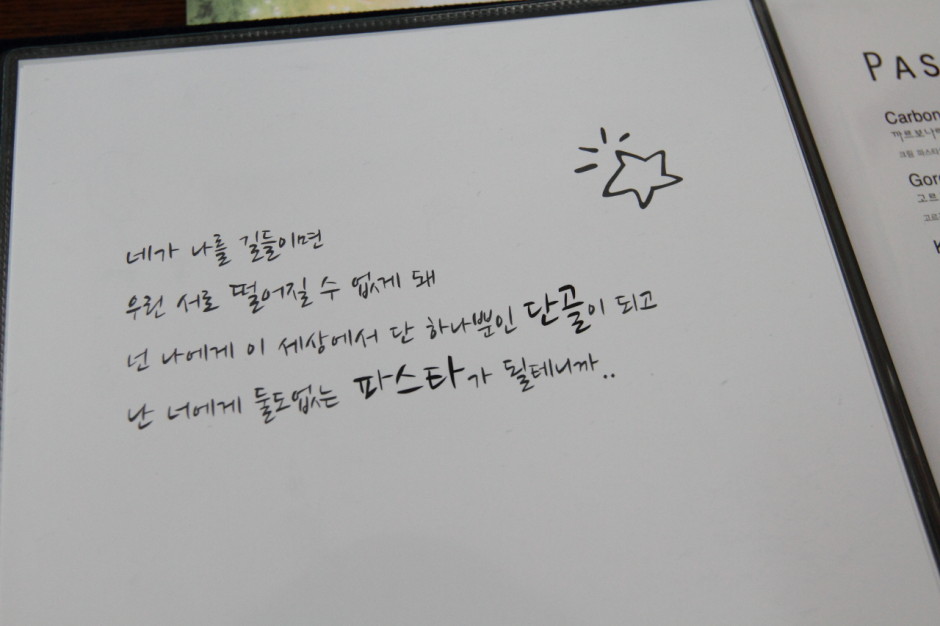 네가 나를 길들이면
우린 서로 떨어질 수 없게 돼
넌 나에게 이 세상에서 단 하나뿐인 단골이 되고
난 너에게 둘도없는 파스타가 될테니까..
PAS
Carbon
까르보나라
크림 파스타
Gor
고르
고르